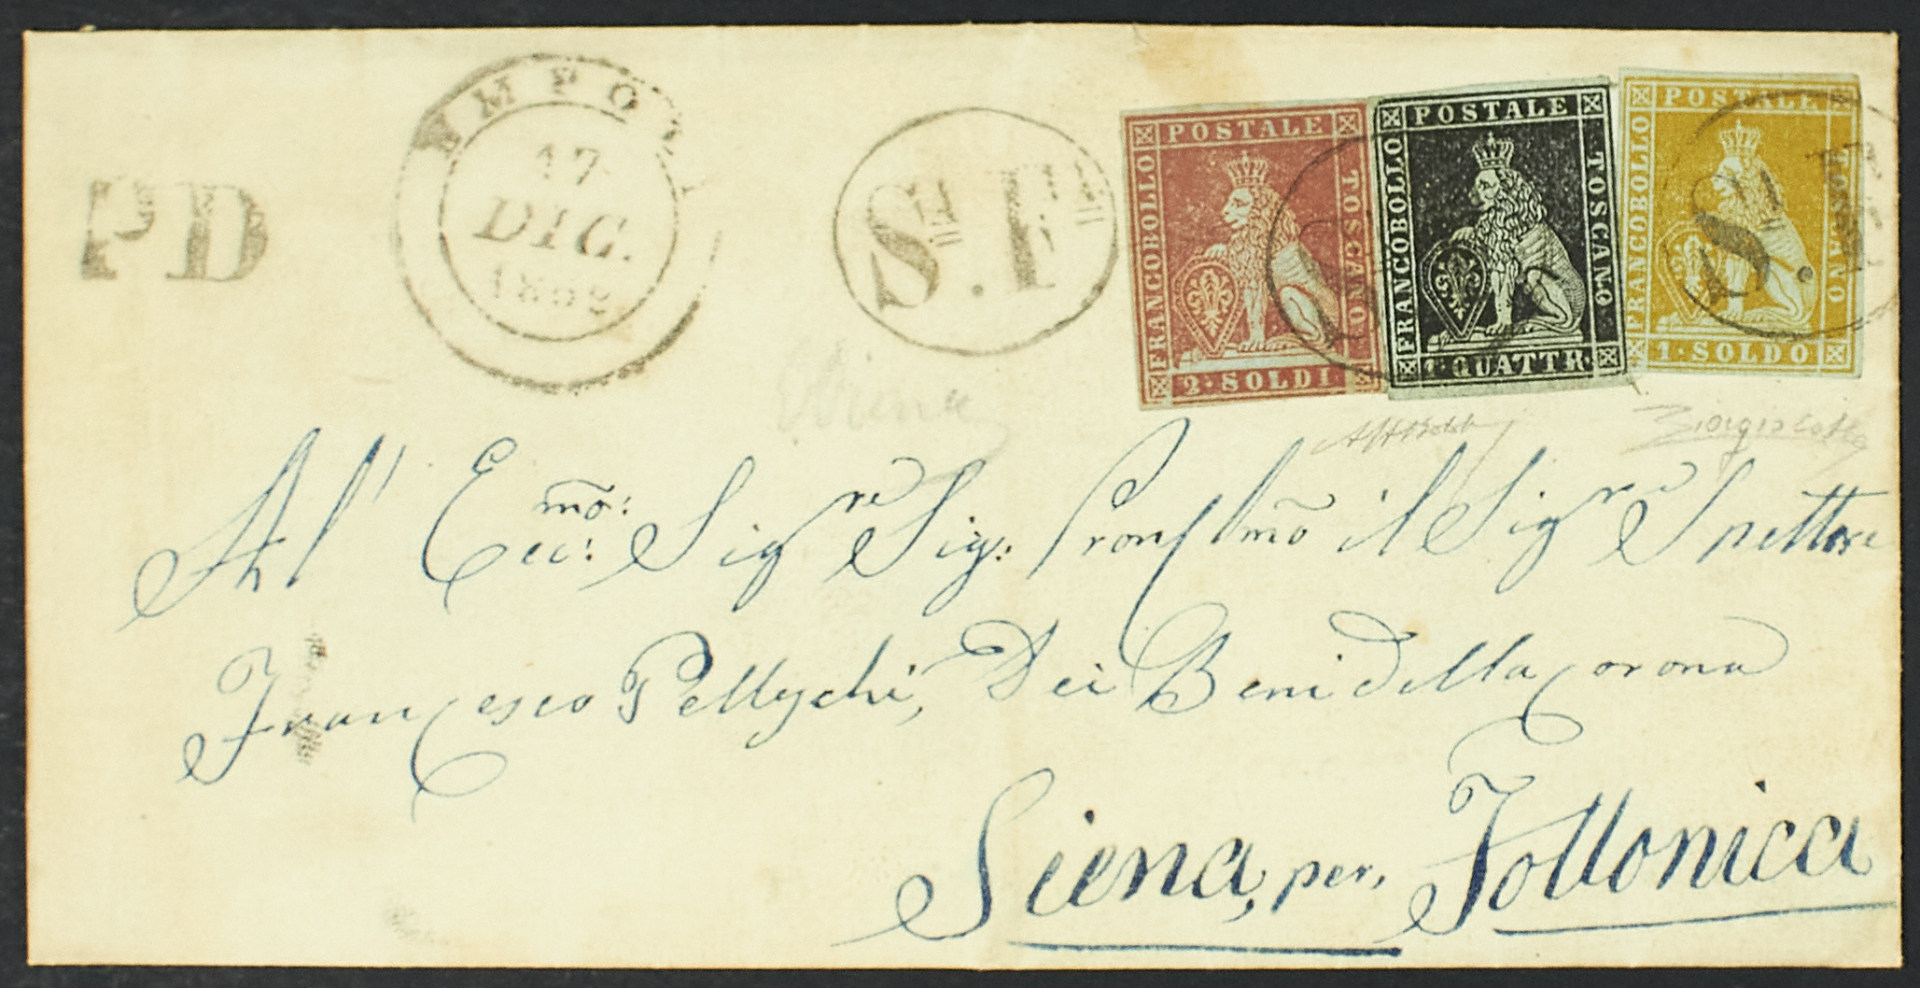 PD
EMPOLI
17
DIC.
S.ta F.
POSTALE
FRANCOBOLLO
TOSCANO
2. SOLDI
POSTALE
FRANCOBOLLO
TOSCANO
1. QUATTR.
POSTALE
FRANCOBOLLO
TOSCANO
1. SOLDO
Siena
All' Ecc:mo: Sigre Sig: Pron il Sigre Ispettore
Francesco Dei Beni della Corona
Siena, per, Follonica